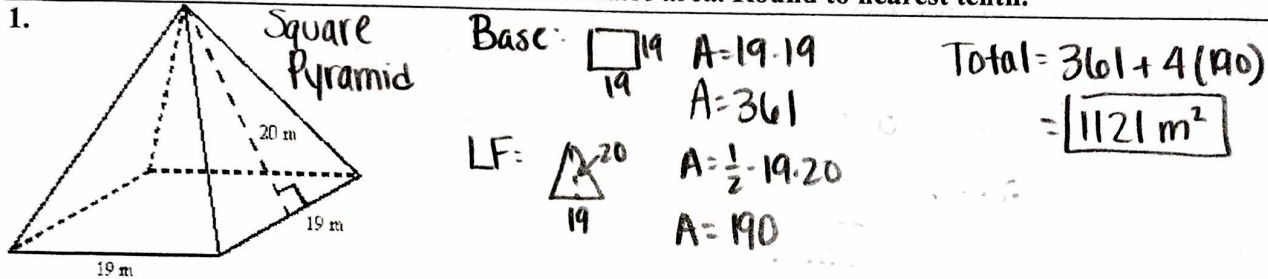 area. Round to nearest tenth.
1.
Square
Pyramid
20 m
19 m
19 m
Base: 19
19
A=19·19
A=361
LF: 20
19
A=½·19·20
A=190
Total=361+4(190)
=1121 m²